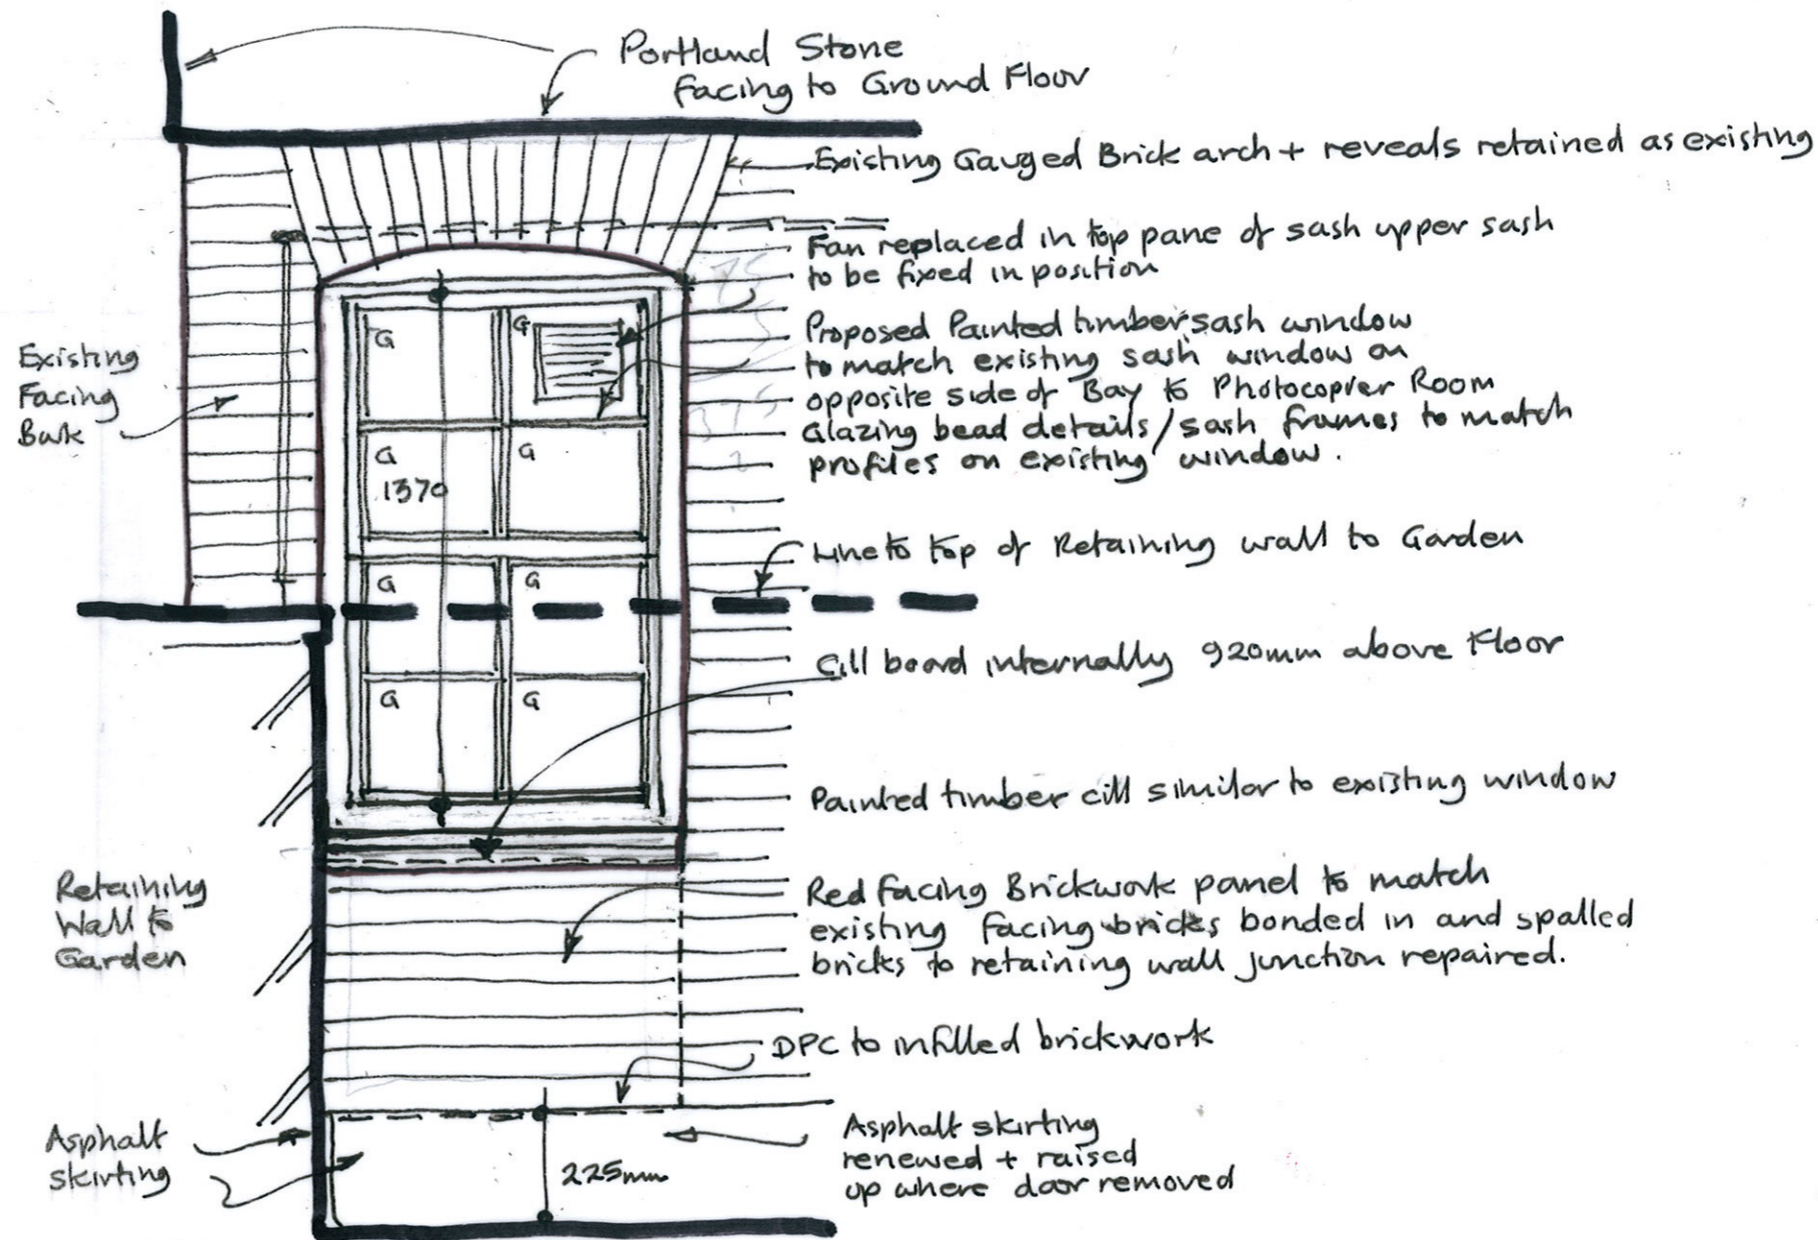 Portland Stone
facing to Ground Floor
Existing Gauged Brick arch + reveals retained as existing
Fan replaced in top pane of sash upper sash
to be fixed in position
Proposed Painted timber sash window
to match existing sash window on
opposite side of Bay to Photocopier Room
Glazing bead details/sash frames to match
profiles on existing window.
Existing
Facing
G
G
G
G
1370
Line to top of Retaining wall to Garden
G
G
Cill board internally 920mm above Floor
G
G
Painted timber cill similar to existing window
Retaining
Wall to
Garden
Red facing Brickwork panel to match
existing facing bricks bonded in and spalled
bricks to retaining wall junction repaired.
DPC to infilled brickwork
Asphalt
skirting
Asphalt skirting
renewed + raised
up where door removed
225mm